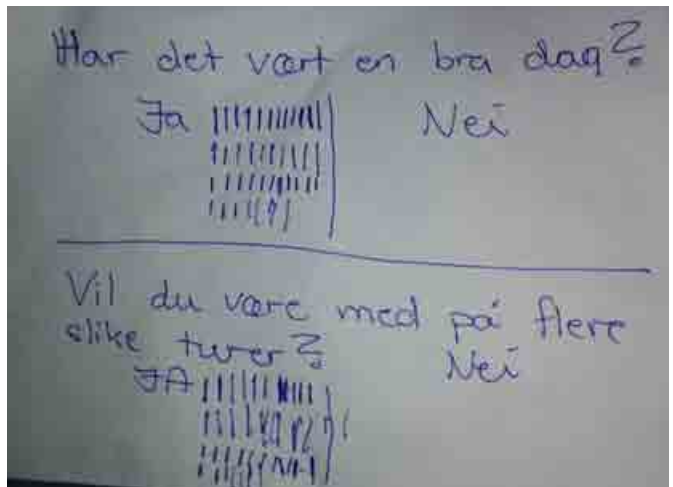 Har det vært en bra dag?
Ja Nei
Vil du være med på flere
slike turer?
JA Nei